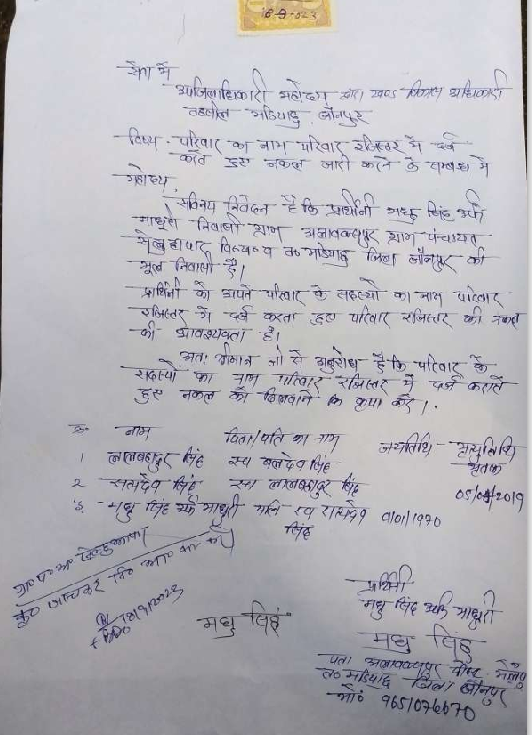 सेवा में
उपजिलाधिकारी महोदय द्वारा खण्ड विकास अधिकारी
तहसील मडियाहू, जौनपुर
विषय - परिवार का नाम परिवार रजिस्टर में दर्ज
करते हुए नकल जारी करने के सम्बन्ध में
महोदय,
सविनय निवेदन है कि प्रार्थीनी मधु सिंह उर्फ
माधुरी निवासी ग्राम ग्राम पंचायत
त० मडियाहू जिला जौनपुर की
मूल निवासी है।
प्रार्थिनी को अपने परिवार के सदस्यो का नाम परिवार
रजिस्टर में दर्ज करता हुए परिवार रजिस्टर की नकल
की आवश्यकता है।
अतः श्रीमान जी से अनुरोध है कि परिवार के
सदस्यो का नाम परिवार रजिस्टर में दर्ज कराते
हुए नकल को दिलवाने कि कृपा करें।
क्र० नाम पिता/पति का नाम जन्मतिथि - मृत्युतिथि
1 लालबहादुर सिंह स्व बलदेव सिंह मृतक
2 सत्यदेव सिंह स्व लालबहादुर सिंह 2019
3 मधु सिंह उर्फ माधुरी पति स्व सत्यदेव सिंह 01/01/1970
मधु सिंह
प्रार्थिनी
मधु सिंह उर्फ माधुरी
मधु सिंह
पता
त० मडियाहू जिला जौनपुर
मो० 9651076670